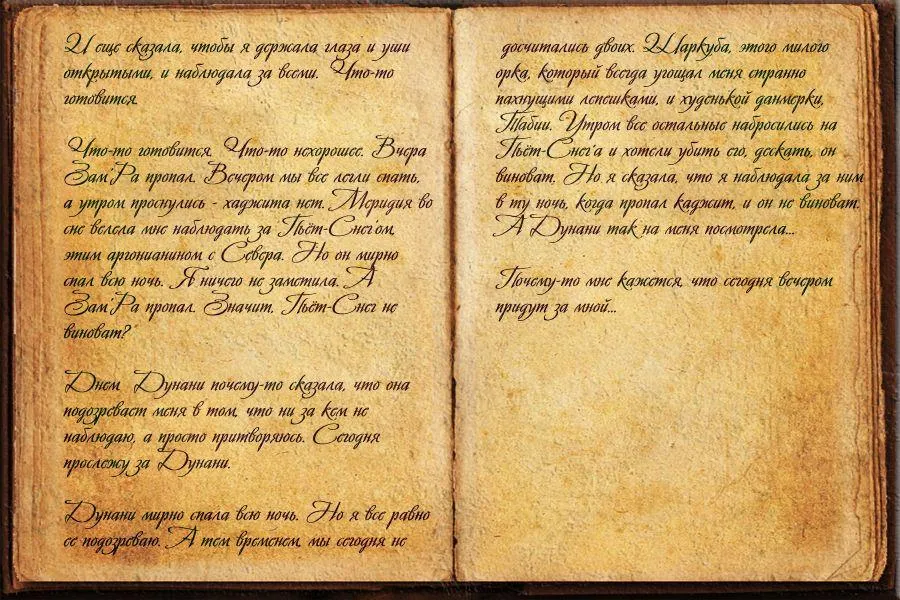 И еще сказала, чтобы я держала глаза и уши
открытыми, и наблюдала за всеми. Что-то
готовится.
Что-то готовится. Что-то нехорошее. Вчера
Зам'Ра пропал. Вечером мы все легли спать,
а утром проснулись - хаджита нет. Меридия во
сне велела мне наблюдать за Пьёт-Снегом,
этим аргонианином с Севера. Но он мирно
спал всю ночь. Я ничего не заметила. А
Зам'Ра пропал. Значит, Пьёт-Снег не
виноват?
Днем Дунани почему-то сказала, что она
подозревает меня в том, что ни за кем не
наблюдаю, а просто притворяюсь. Сегодня
прослежу за Дунани.
Дунани мирно спала всю ночь. Но я все равно
ее подозреваю. А тем временем, мы сегодня не
досчитались двоих. Шаркуба, этого милого
орка, который всегда угощал меня странно
пахнущими лепешками, и худенькой данмерки,
Табии. Утром все остальные набросились на
Пьёт-Снег'а и хотели убить его, дескать, он
виноват. Но я сказала, что я наблюдала за ним
в ту ночь, когда пропал каджит, и он не виноват.
А Дунани так на меня посмотрела...
Почему-то мне кажется, что сегодня вечером
придут за мной...